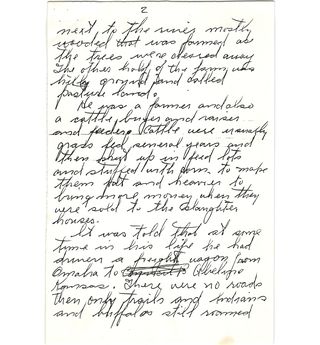 2
next to the river mostly
wooded that was farmed as
the trees were cleared away
The other half of the farm was
hilly ground and called
pasture land.
He was a farmer and also
a cattle buyer and raiser
and feeder. Cattle were usually
grass fed several years and
then shut up in feed lots
and stuffed with corn to make
them fat and heavier to
bring more money when they
were sold to the slaughter
houses.
It was told that at some
time in his life he had
driven a freight wagon from
Omaha to Abelene
Kansas. There were no roads
then only trails and Indians
and buffalos still roamed